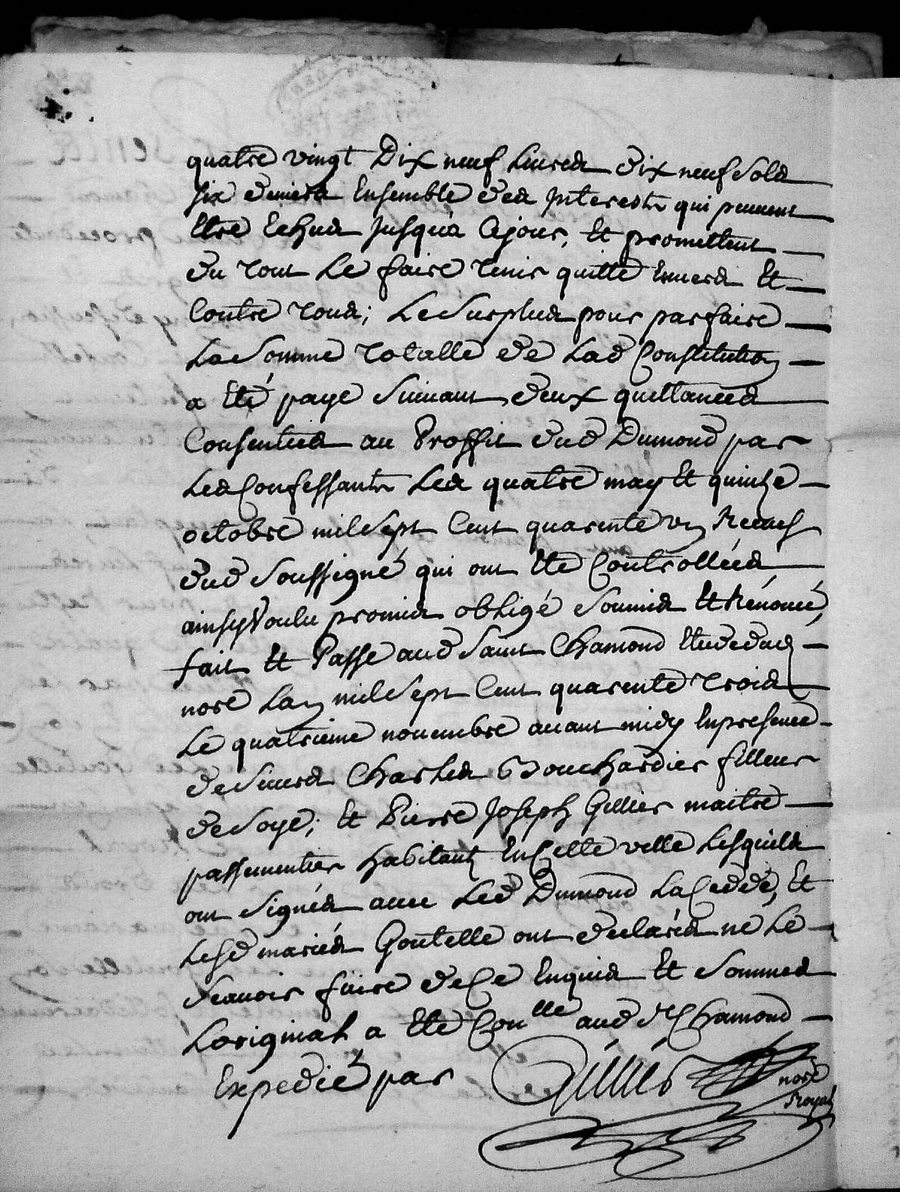 quatre vingt Dix neuf Livres dix neuf Sols
six deniers Ensemble des Interests qui peuvent
Etre Echus Jusqu'a Ce jour, Et promettent
du tout Le faire tenir quitte Envers Et
Contre tous; Le Surplus pour parfaire
La Somme totalle de Lad Constitution
a Eté payé Suivant deux quittances
Consenties au Proffit dud Dumond par
Les Confessants Les quatre may Et quinze
octobre mil sept Cent quarente un Recues
dud Soussigné qui ont Eté Controllées
ainsy Voulu promis obligé Soumis Et Rénoncé,
fait Et Passé aud Saint Chamond Etude dud
nore Lan mil sept Cent quarente trois
Le quatrieme novembre avant midy En presence
de Sieurs Charles Bouchardier filleur
de Soye; Et Pierre Joseph Gillier maitre
passementier habitants En Cette ville Lesquels
ont Signés avec Led Dumond La Cedde, Et
Lesd mariés Goutelle ont declarés ne Le
Scavoir faire de Ce Enquis Et Sommés
Loriginal a Eté Conlle aud St Chamond
Expedié par
nore
Royal